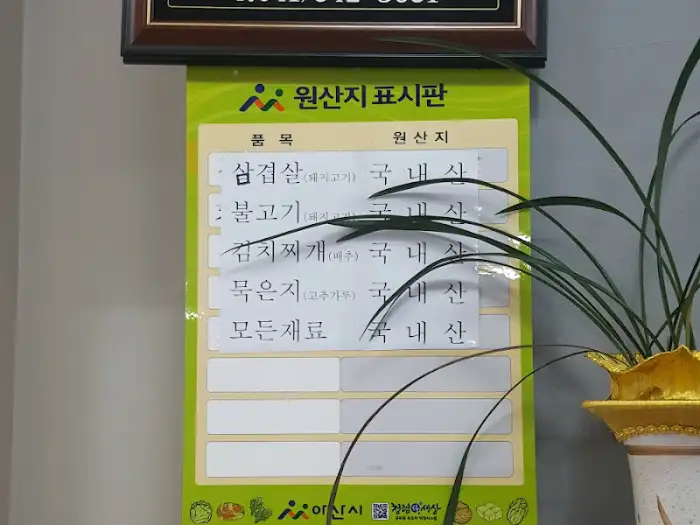 원산지 표시판
품 목 원 산 지
삼겹살(돼지고기) 국 내 산
불고기(돼지고기) 국 내 산
김치찌개(배추) 국 내 산
묵은지(고추가루) 국 내 산
모든재료 국 내 산
아산시